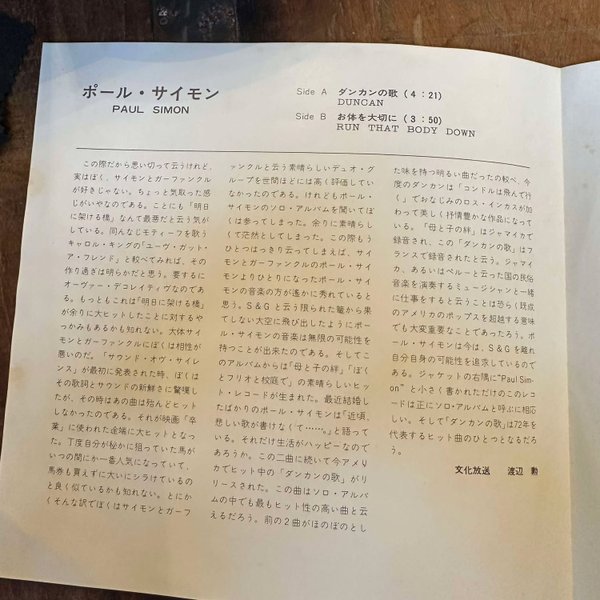 ポール・サイモン
PAUL SIMON
Side A ダンカンの歌 (4:21)
DUNCAN
Side B お体を大切に (3:50)
RUN THAT BODY DOWN
この際だから思い切って云うけれど、
実はぼく、サイモンとガーファンクル
が好きじゃない。ちょっと気取った感
じがいやなのである。ことにも「明日
に架ける橋」なんて最悪だと云う気が
している。同んなじモティーフを歌う
キャロル・キングの「ユーヴ・ガット・
ア・フレンド」と較べてみれば、その
作り過ぎは明らかだと思う。要するに
オーヴァー・デコレイティヴなのであ
る。もっともこれは「明日に架ける橋」
が余りに大ヒットしたことに対するや
っかみもあるかも知れない。大体サイ
モンとガーファンクルにぼくは相性が
悪いのだ。「サウンド・オヴ・サイレ
ンス」が最初に発表された時、ぼくは
その歌詞とサウンドの新鮮さに驚嘆し
たが、その時はあの曲は殆んどヒット
しなかったのである。それが映画「卒
業」に使われた途端に大ヒットとなっ
た。丁度自分が秘かに狙っていた馬が
いつの間にか一番人気になっていて、
馬券も買えずに大いにシラけているの
と良く似ているかも知れない。とにか
くそんな訳でぼくはサイモンとガーフ
ァンクルと云う素晴らしいデュオ・グ
ループを世間ほどには高く評価してい
なかったのである。けれどもポール・
サイモンのソロ・アルバムを聞いてぼ
くは参ってしまった。余りに素晴らし
くて茫然としてしまった。この際もう
ひとつはっきり云ってしまえば、サイ
モンとガーファンクルのポール・サイ
モンよりひとりになったポール・サイ
モンの音楽の方が遙かに秀れていると
思う。S&Gと云う限られた籠から飛
してない大空に飛び出したようにポー
ル・サイモンの音楽は無限の可能性を
持つことが出来たのである。そしてこ
のアルバムからは「母と子の絆」「ぼく
とフリオと校庭で」の素晴らしいヒッ
ト・レコードが生まれた。最近結婚し
たばかりのポール・サイモンは「近頃、
悲しい歌が書けなくて……。」と語って
いる。それだけ生活がハッピーなので
あろうか。この二曲に続いて今アメリ
カでヒット中の「ダンカンの歌」がリ
リースされた。この曲はソロ・アルバ
ムの中でも最もヒット性の高い曲と云
えるだろう。前の2曲がほのぼのとし
た味を持つ明るい曲だったの較べ、今
度のダンカンは「コンドルは飛んで行
く」でおなじみのロス・インカスが加
わって美しく抒情豊かな作品になって
いる。「母と子の絆」はジャマイカで
録音され、この「ダンカンの歌」はフ
ランスで録音されたと云う。ジャマイ
カ、あるいはペルーと云った国の民俗
音楽を演奏するミュージシャンと一緒
に仕事をすると云うことは恐らく既成
のアメリカのポップスを超越する意味
でも大変重要なことであったろう。ポ
ール・サイモンは今、S&Gを離れ
自分自身の可能性を追求しているので
ある。ジャケットの右隅に“Paul Sim-
on”と小さく書かれただけのこのレコ
ードは正にソロ・アルバムと呼ぶに相応
しい。そして「ダンカンの歌」は72年を
代表するヒット曲のひとつとなるだろ
う。
文化放送 渡辺 勲